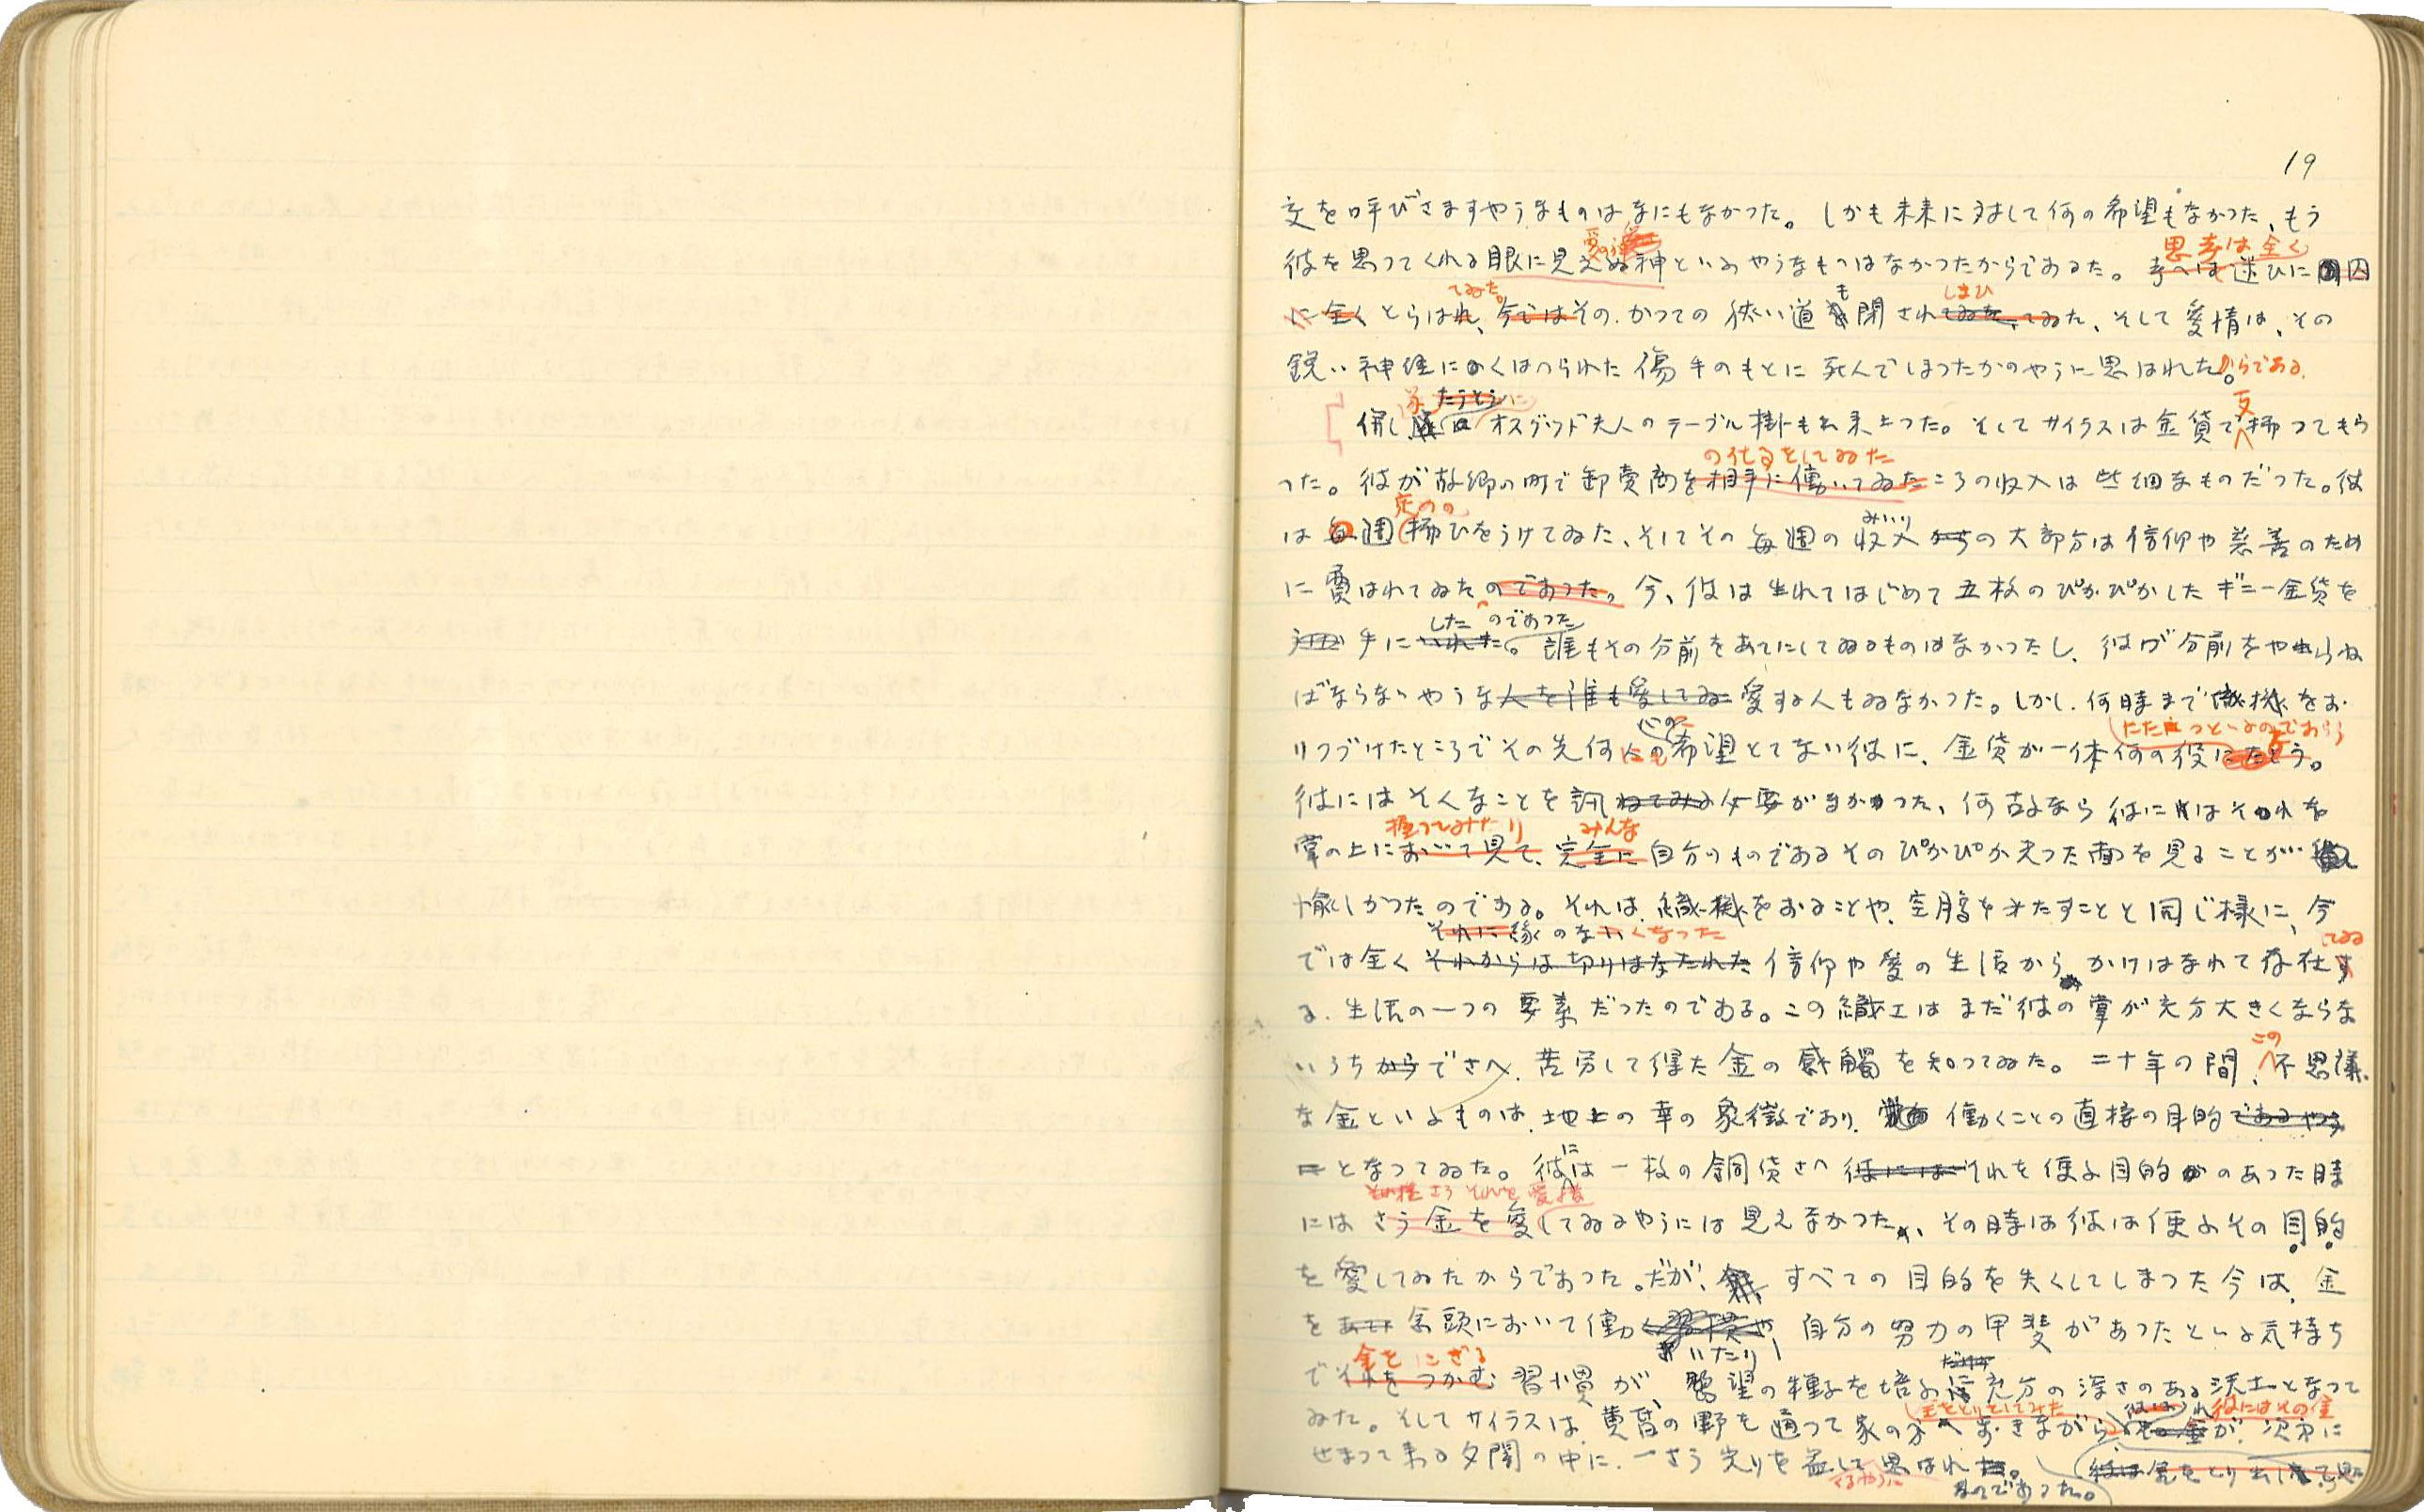 19
交を呼びさますやうなものはなにもなかつた。しかも未来に対して何の希望もなかつた、もう
思考は全く
彼を思つてくれる眼に見えぬ神といふやうなものはなかつたからであるた。考へは迷ひに囚
てゐた。 も しまひ
に全くとらはれ、今ではその、かつての狭い道 閉されてゐた、てゐた、そして愛情は、その
鋭い神経に くはへられた傷手のもとに死んでしまつたかのやうに思はれた。からである。
遂 たうとうに 支
併し オスグッド夫人のテーブル掛も出来上つた。そしてサイラスは金貨で払つてもら
の仕事をしてゐた
つた。彼が故郷の町で卸売商を相手に働いてゐたころの収入は些細なものだつた。彼
みいり
は毎週払ひをうけてゐた、そしてその毎週の収入からの大部分は信仰や慈善のため
に費はれてゐたのであつた。今、彼は生れてはじめて五枚のぴかぴかしたギニー金貨を
した のであつた
手にいれた。誰もその分前をあてにしてゐるものはなかつたし、彼が分前をやらね
ばならないやうな人を誰も愛してゐ 愛する人もゐなかつた。しかし、何時まで織機をお
心の たつといふのであらう
りつづけたところでその先何にも希望とてない彼に、金貨が一体何の役にたとう。
彼にはそんなことを訊ねてみる必要がなかつた、何故なら彼にはそれを
握つてみたり みんな
掌の上においで見て、完全に自分のものであるそのぴかぴか光つた面を見ることが
愉しかつたのである。それは、織機をおることや、空腹をみたすことと同じ様に、今
それに縁のないくなつた てゐる
では全くそれからは切りはなたれた信仰や愛の生活から かけはなれて存在す
る、生活の一つの要素だつたのである。この織工はまだ彼の掌が充分大きくならな
この
いうちからでさへ、苦労して得た金の感触を知つてゐた。二十年の間、不思議
な金といふものは、地上の幸の象徴であり、働くことの直接の目的であるやう
に
となつてゐた。彼は一枚の銅貨さへ彼にはそれを使ふ目的のあつた時
その様さう それを愛撫
にはさう金を愛してゐるやうには見えなかつた、その時は彼は使ふその目的
を愛してゐたからであつた。だが、すべての目的を失くしてしまつた今は、金
を 念頭において働く 自分の努力の甲斐があつたといふ気持ち
金をにぎる いたり だけ
でそれをつかむ習慣が、希望の種子を培ふに充分の深さのある沃土となつて
彼は 彼にはその金
ゐた。そしてサイラスは、黄昏の野を通つて家の方へ歩きながら、その金が、次第に
せまつて来る夕闇の中に、一さう光りを益して思はれた。 彼は金をとり出して見
くるやうに なのであつた。